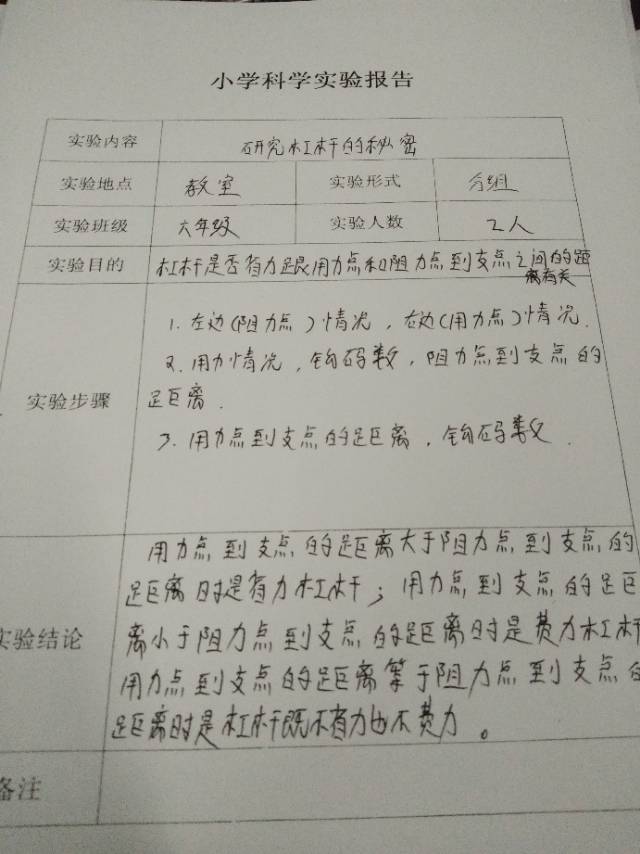 小学科学实验报告
实验内容 研究杠杆的秘密
实验地点 教室 实验形式 分组
实验班级 六年级 实验人数 2人
实验目的 杠杆是否省力跟用力点和阻力点到支点之间的距
离有关
1. 左边(阻力点)情况，右边(用力点)情况.
2. 用力情况，钩码数，阻力点到支点的
实验步骤 距离.
3. 用力点到支点的距离，钩码数.
用力点到支点的距离大于阻力点到支点的
距离时是省力杠杆；用力点到支点的距
实验结论 离小于阻力点到支点的距离时是费力杠杆
用力点到支点的距离等于阻力点到支点的
距离时是杠杆既不省力也不费力。
备注